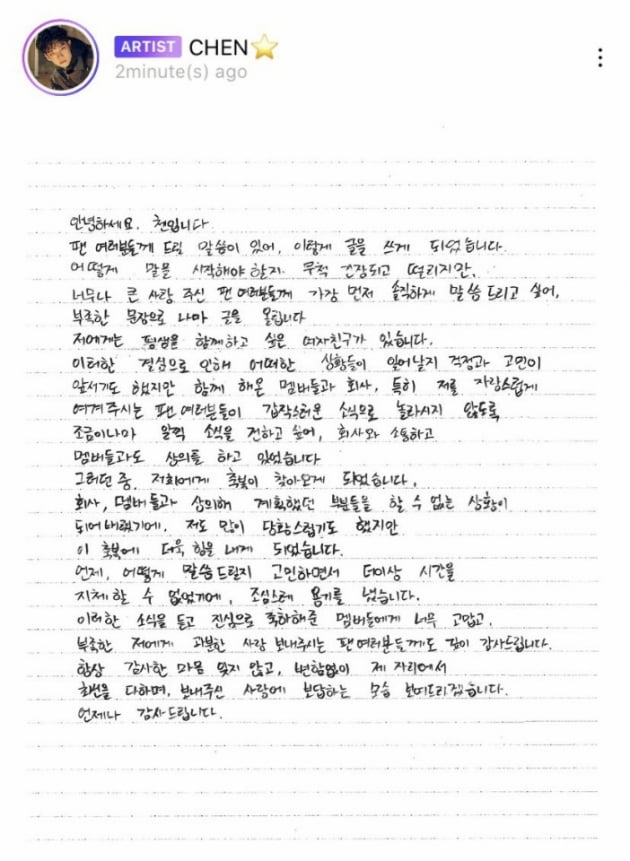 ARTIST CHEN⭐
2minute(s) ago
안녕하세요. 첸입니다
팬 여러분들께 드릴 말씀이 있어, 이렇게 글을 쓰게 되었습니다.
어떻게 말을 시작해야 할지 무척 긴장되고 떨리지만,
너무나 큰 사랑 주신 팬 여러분들께 가장 먼저 솔직하게 말씀 드리고 싶어,
부족한 문장으로 나마 글을 올립니다
저에게는 평생을 함께하고 싶은 여자친구가 있습니다.
이러한 결심으로 인해 어떠한 상황들이 일어날지 걱정과 고민이
앞서기도 했지만 함께 해온 멤버들과 회사, 특히 저를 자랑스럽게
여겨주시는 팬 여러분들이 갑작스러운 소식으로 놀라시지 않도록
조금이나마 일찍 소식을 전하고 싶어, 회사와 소통하고
멤버들과도 상의를 하고 있었습니다
그러던 중, 저희에게 축복이 찾아오게 되었습니다.
회사, 멤버들과 상의해 계획했던 부분들을 할 수 없는 상황이
되어버렸기에, 저도 많이 당황스럽기도 했지만
이 축복에 더욱 힘을 내게 되었습니다.
언제, 어떻게 말씀드릴지 고민하면서 더이상 시간을
지체할 수 없었기에, 조심스레 용기를 냈습니다.
이러한 소식을 듣고 진심으로 축하해준 멤버들에게 너무 고맙고,
부족한 저에게 과분한 사랑 보내주시는 팬여러분들께도 깊이 감사드립니다.
항상 감사한 마음 잊지 않고, 변함없이 제 자리에서
최선을 다하며, 보내주신 사랑에 보답하는 모습 보여드리겠습니다.
언제나 감사드립니다.